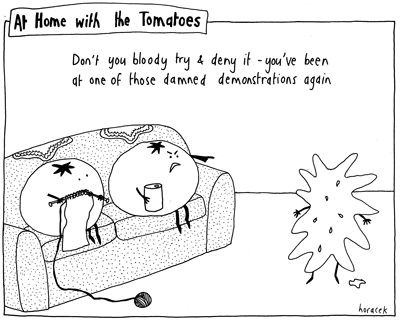 At Home with the Tomatoes
Don't you bloody try & deny it - you've been
at one of those damned demonstrations again
horacek